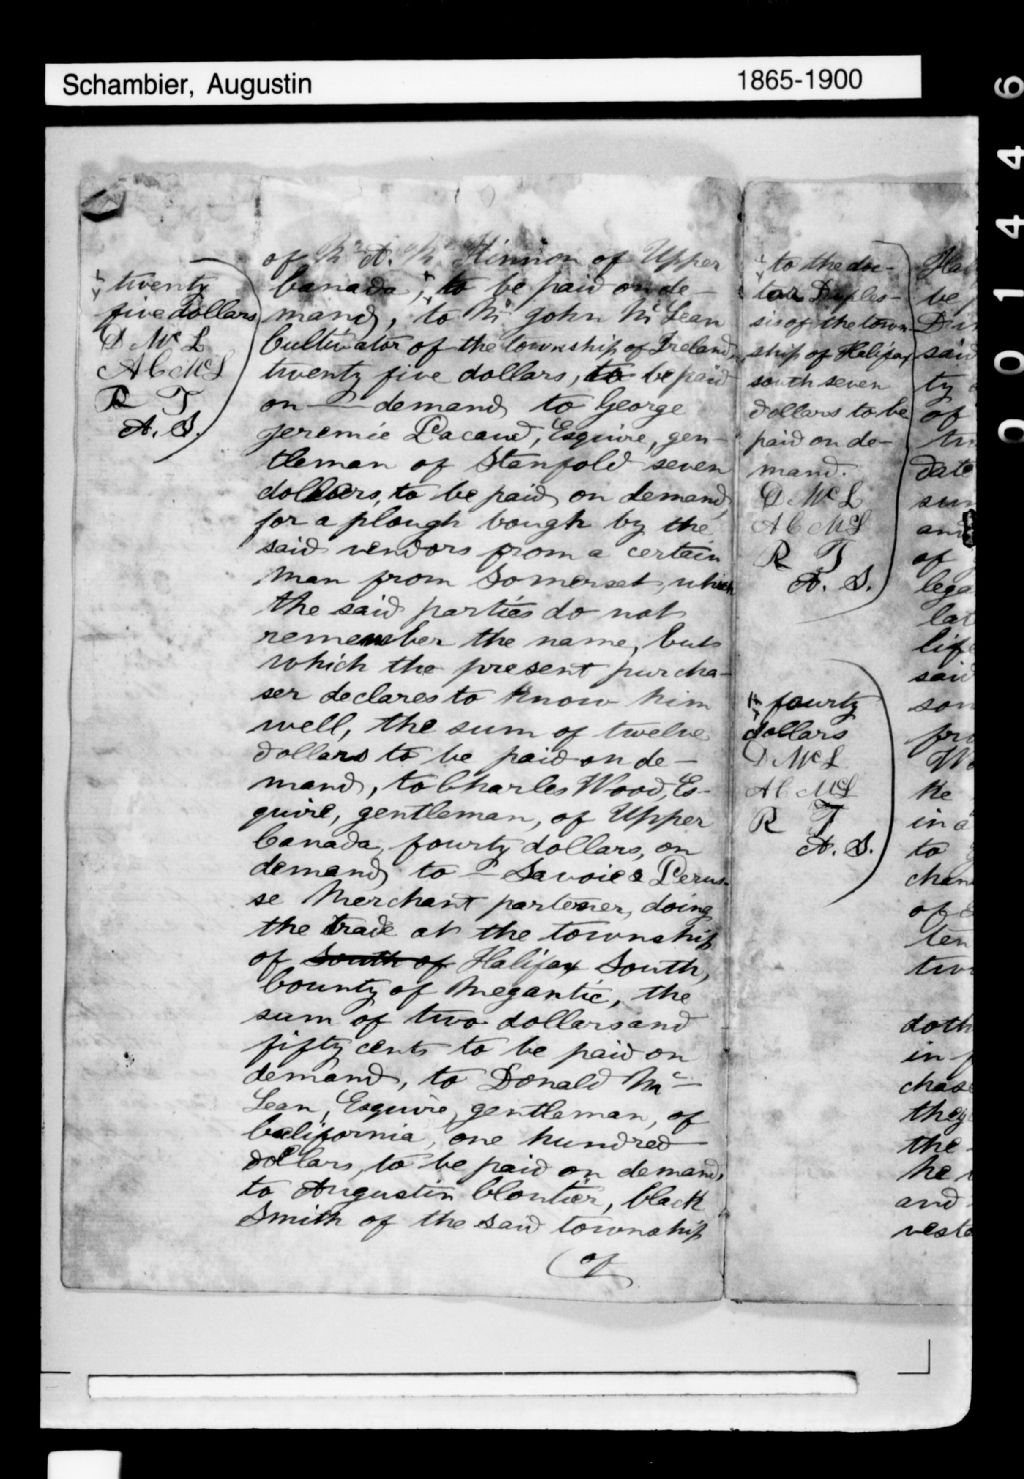 Schambier, Augustin 1865-1900
001446
twenty
five dollars
D McL
A C McL
R T
A. S.
of Mr A. Mc Kinnon of Upper
Canada, to be paid on de-
mand, to Mr John McLean
Cultivator of the township of Ireland,
twenty five dollars, to be paid
on — demand to George
Jeremie Pacaud, Esquire, gen-
tleman of Stanfold seven
dollars, to be paid on demand,
for a plough bough by the
said vendors from a certain
man from Somerset, which
the said parties do not
remember the name, but
which the present purcha-
ser declares to know him
well, the sum of twelve
dollars to be paid on de-
mand, to Charles Wood, Es-
quire, gentleman, of Upper
Canada, fourty dollars, on
demand to — Savoie & Perus-
se Merchant partener, doing
the trade at the township
of South of Halifax South,
County of Megantic, the
sum of two dollars and
fifty cents to be paid on
demand, to Donald Mc
Lean, Esquire, gentleman, of
California, one hundred
dollars, to be paid on demand,
to Augustin Cloutier, black
Smith of the said township
(of
to the doc-
tor Duples-
sis of the town-
ship of Halifax
south seven
dollars to be
paid on de-
mand.
D McL
A C McL
R T
A. S.
fourty
dollars
D McL
A C McL
R T
A. S.
said
ty
of
date
sum
and
of
lega
lat
life
said
son
pro
he
in a
to
chan
of
ten
two
doth
in p
chase
they
the
he
and
veste